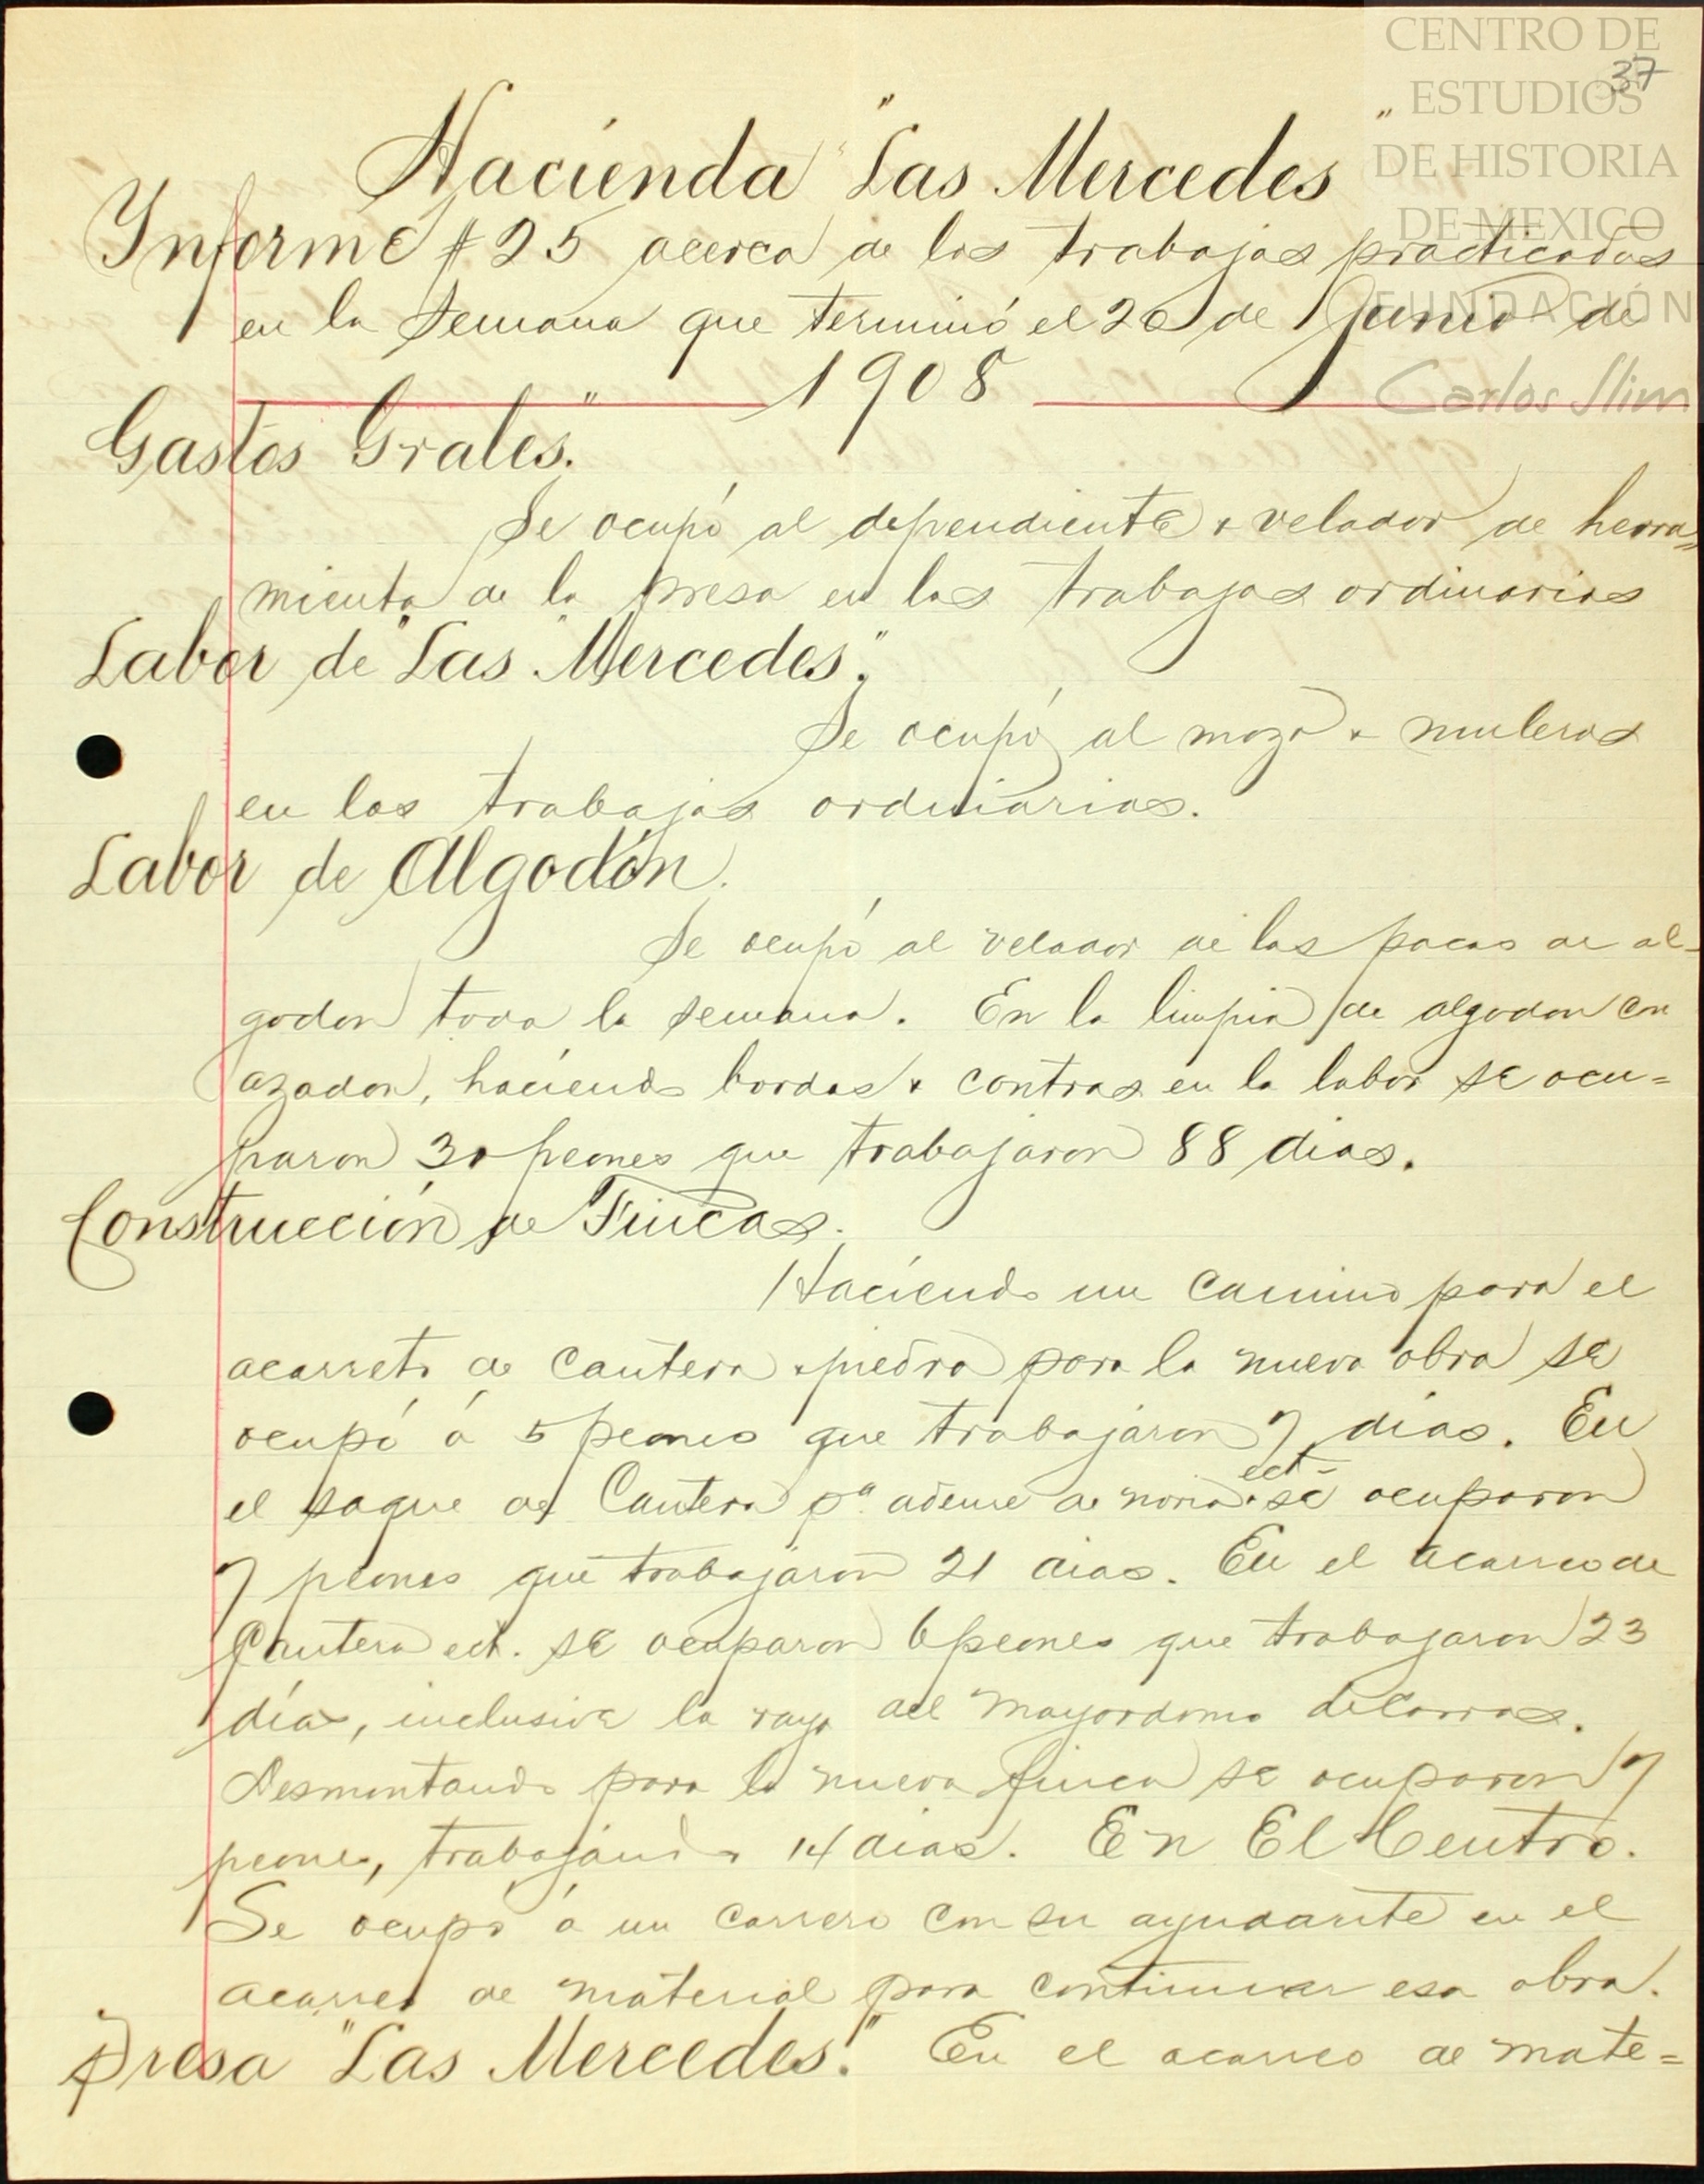 CENTRO DE
37
ESTUDIOS
DE HISTORIA
DE MEXICO
FUNDACIÓN
Carlos Slim
Hacienda "Las Mercedes"
Informe # 25 acerca de los trabajos practicados
en la semana que terminó el 20 de Junio de
1908
Gastos Grales."
Se ocupó al dependiente & velador de herra=
mienta de la presa en los trabajos ordinarios
Labor de "Las Mercedes."
Se ocupó al mozo & muleros
en los trabajos ordinarios.
Labor de Algodón.
Se ocupó al velador de las pacas de al-
godon toda la semana. En la limpia de algodon con
azadon, haciendo bordos & contras en la labor se ocu=
paron 30 peones que trabajaron 88 dias.
Construcción de Fincas.
Haciendo un camino para el
acarreto de Cantera & piedra para la nueva obra se
ocupó á 5 peones que trabajaron 7 dias. En
el saque de Cantera pa. ademe de noria & ect- se ocuparon
7 peones que trabajaron 21 dias. En el acarreo de
Cantera ect. se ocuparon 6 peones que trabajaron 23
días, inclusive la raya del mayordomo de Carros.
Desmontando para la nueva finca se ocuparon 7
peones, trabajando 14 dias. En El Centro.
Se ocupó á un carrero con su ayudante en el
acarreo de material para continuar esa obra.
Presa "Las Mercedes." En el acarreo de mate=